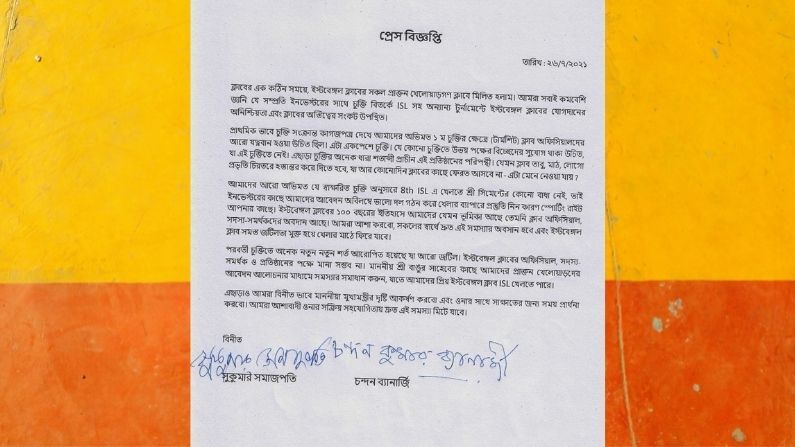 প্রেস বিজ্ঞপ্তি
তারিখ : ২৬/৭/২০২১
ক্লাবের এক কঠিন সময়ে, ইস্টবেঙ্গল ক্লাবের সকল প্রাক্তন খেলোয়াড়গণ ক্লাবে মিলিত হলাম। আমরা সবাই কমবেশি
জানি যে সম্প্রতি ইনভেস্টরের সাথে চুক্তি বিতর্কে ISL সহ অন্যান্য টুর্নামেন্টে ইস্টবেঙ্গল ক্লাবের যোগদানের
অনিশ্চিয়তা এবং ক্লাবের অস্তিত্বের সংকট উপস্থিত।
প্রাথমিক ভাবে চুক্তি সংক্রান্ত কাগজপত্র দেখে আমাদের অভিমত ১ ম চুক্তির ক্ষেত্রে (টার্মশিট) ক্লাব অফিসিয়ালদের
আরো যত্নবান হওয়া উচিত ছিল। এটা একপেশে চুক্তি। যে কোনো চুক্তিতে উভয় পক্ষের বিচ্ছেদের সুযোগ থাকা উচিত,
যা এই চুক্তিতে নেই। এছাড়া চুক্তির অনেক ধারা শতাব্দী প্রাচীন এই প্রতিষ্ঠানের পরিপন্থী। যেমন ক্লাব তাবু, মাঠ, লোগো
প্রভৃতি চিরতরে হস্তান্তর করে দিতে হবে, যা আর কোনোদিন ক্লাবের কাছে ফেরত আসবে না - এটা মেনে নেওয়া যায় ?
আমাদের আরো অভিমত যে স্বাক্ষরিত চুক্তি অনুসারে 8th ISL এ খেলতে শ্রী সিমেন্টের কোনো বাধা নেই, তাই
ইনভেস্টরের কাছে আমাদের আবেদন অবিলম্বে ভালো দল গঠন করে খেলার ব্যাপারে প্রস্তুতি নিন কারণ স্পোর্টিং রাইট
আপনার কাছে। ইস্টবেঙ্গল ক্লাবের ১০০ বছরের ইতিহাসে আমাদের যেমন ভূমিকা আছে তেমনি ক্লাব অফিসিয়াল,
সদস্য-সমর্থকদের অবদান আছে। আমরা আশা করবো, সকলের স্বার্থে দ্রুত এই সমস্যার অবসান হবে এবং ইস্টবেঙ্গল
ক্লাব সমস্ত জটিলতা মুক্ত হয়ে খেলার মাঠে ফিরে যাবে।
পরবর্তী চুক্তিতে অনেক নতুন নতুন শর্ত আরোপিত হয়েছে যা আরো জটিল। ইস্টবেঙ্গল ক্লাবের অফিসিয়াল, সদস্য-
সমর্থক ও প্রতিষ্ঠানের পক্ষে মানা সম্ভব না। মাননীয় শ্রী বাঙুর সাহেবের কাছে আমাদের প্রাক্তন খেলোয়াড়দের
আবেদন আলোচনার মাধ্যমে সমস্যার সমাধান করুন, যাতে আমাদের প্রিয় ইস্টবেঙ্গল ক্লাব ISL খেলতে পারে।
এছাড়াও আমরা বিনীত ভাবে মাননীয়া মুখ্যমন্ত্রীর দৃষ্টি আকর্ষণ করবো এবং ওনার সাথে সাক্ষাতের জন্য সময় প্রার্থনা
করবো। আমরা আশাবাদী ওনার সক্রিয় সহযোগিতায় দ্রুত এই সমস্যা মিটে যাবে।
বিনীত
চন্দন কুমার ব্যানার্জী
সুকুমার সমাজপতি চন্দন ব্যানার্জি